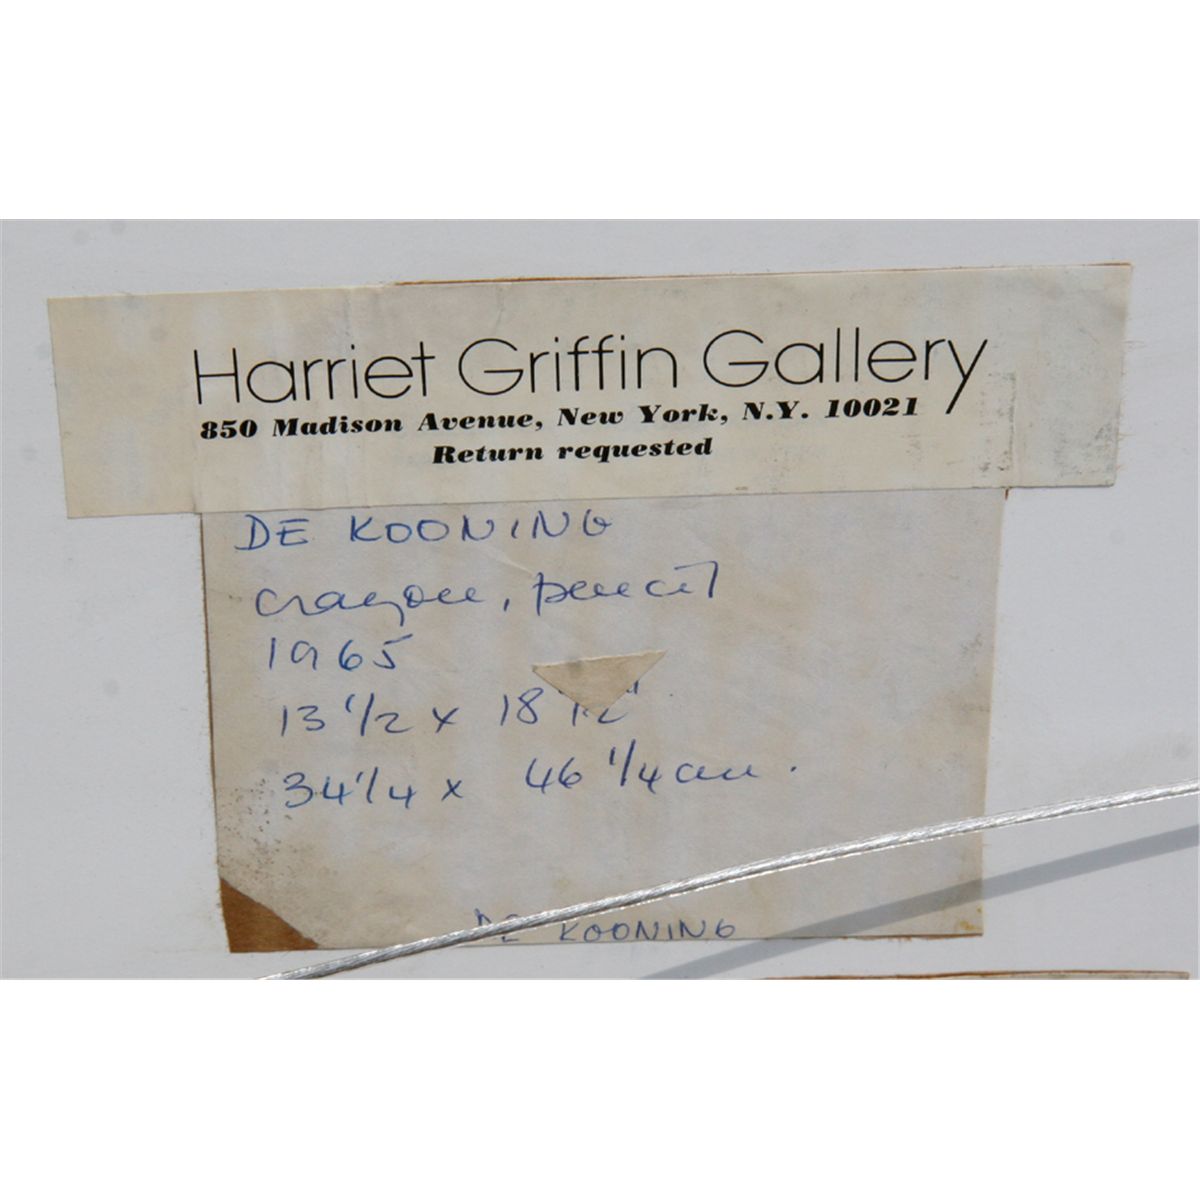 Harriet Griffin Gallery
850 Madison Avenue, New York, N.Y. 10021
Return requested
DE KOONING
crayon, pencil
1965
13 1/2 x 18 1/2"
34 1/4 x 46 1/4 cm.
DE KOONING